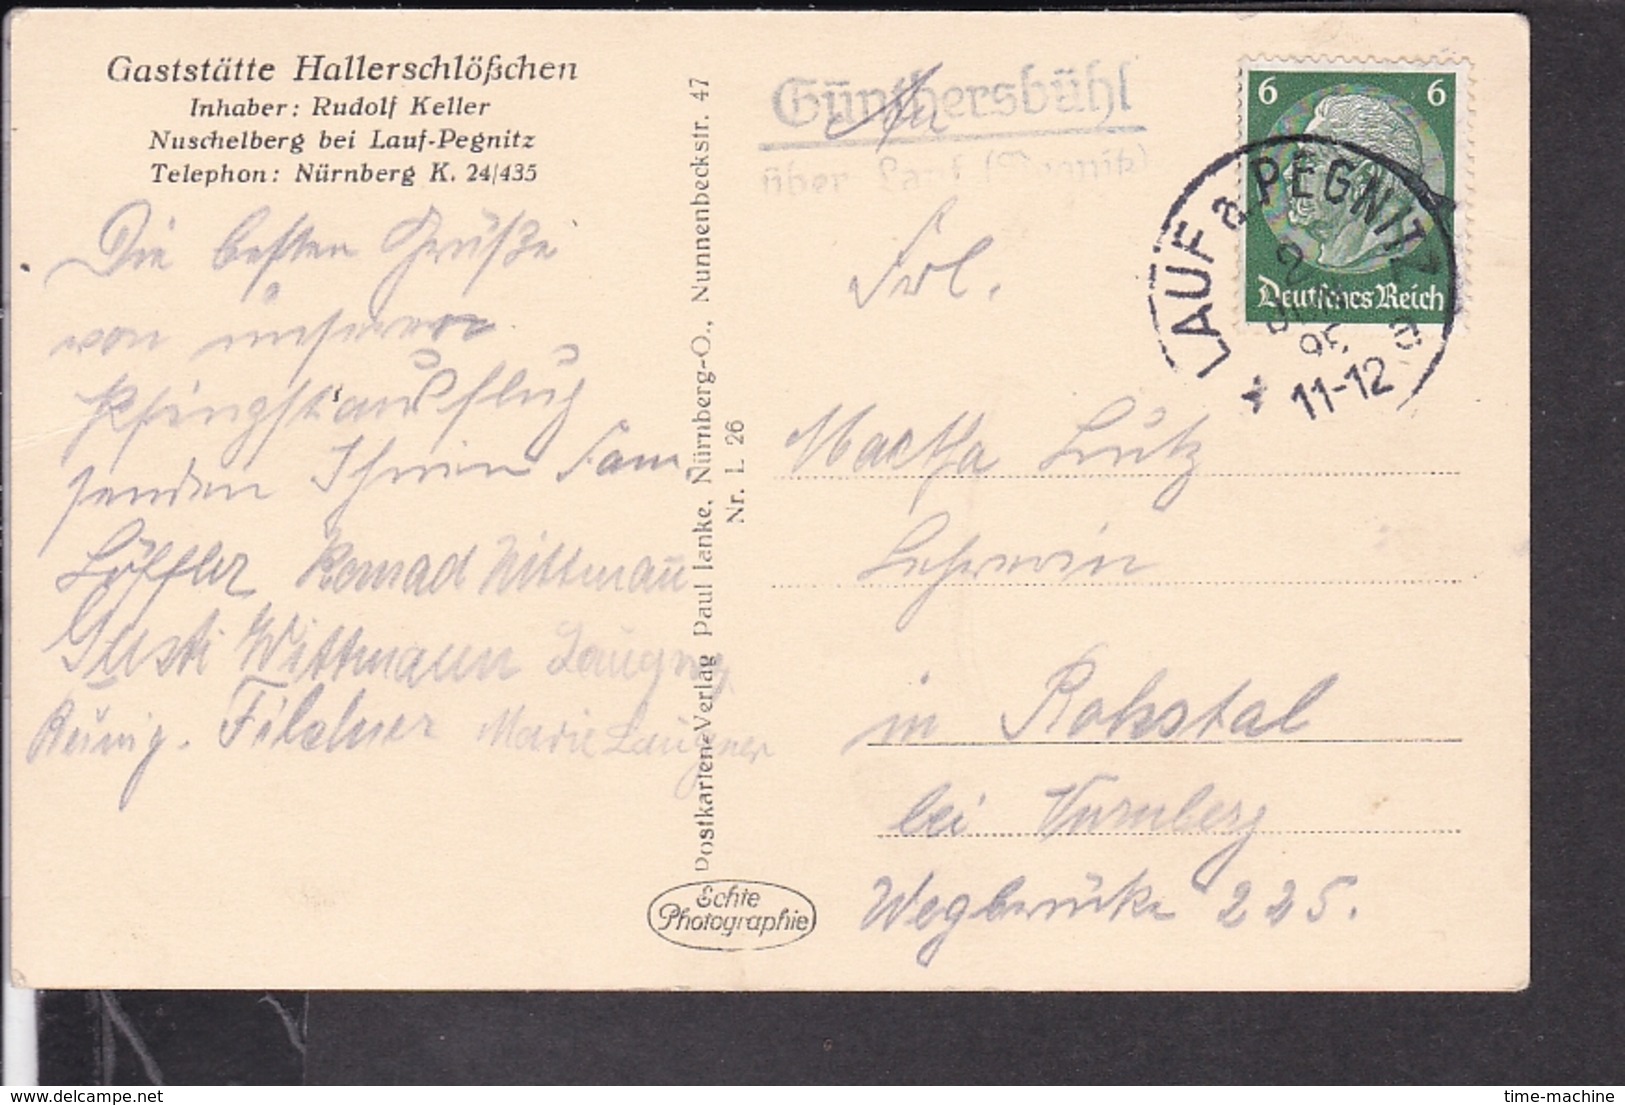 Gaststätte Hallerschlößchen
Inhaber: Rudolf Keller
Nuschelberg bei Lauf-Pegnitz
Telephon: Nürnberg K. 24/435
Die besten Grüße
von unserer
Pfingstausflug
senden Ihnen Fam
Löffler Konrad Wittmann
Gusti Wittmann Laugner
Filchner Marie Laugner
Postkarten-Verlag Paul Janke, Nürnberg-O., Nunnenbeckstr. 47
Nr. L 26
Echte
Photographie
Günthersbühl
über Lauf (Pegnitz)
An
6 6
Deutsches Reich
LAUF a. PEGNITZ
2
11-12
Frl.
Martha Lutz
in Rohstal
bei Nürnberg
Wegbrücke 225.
time-machine